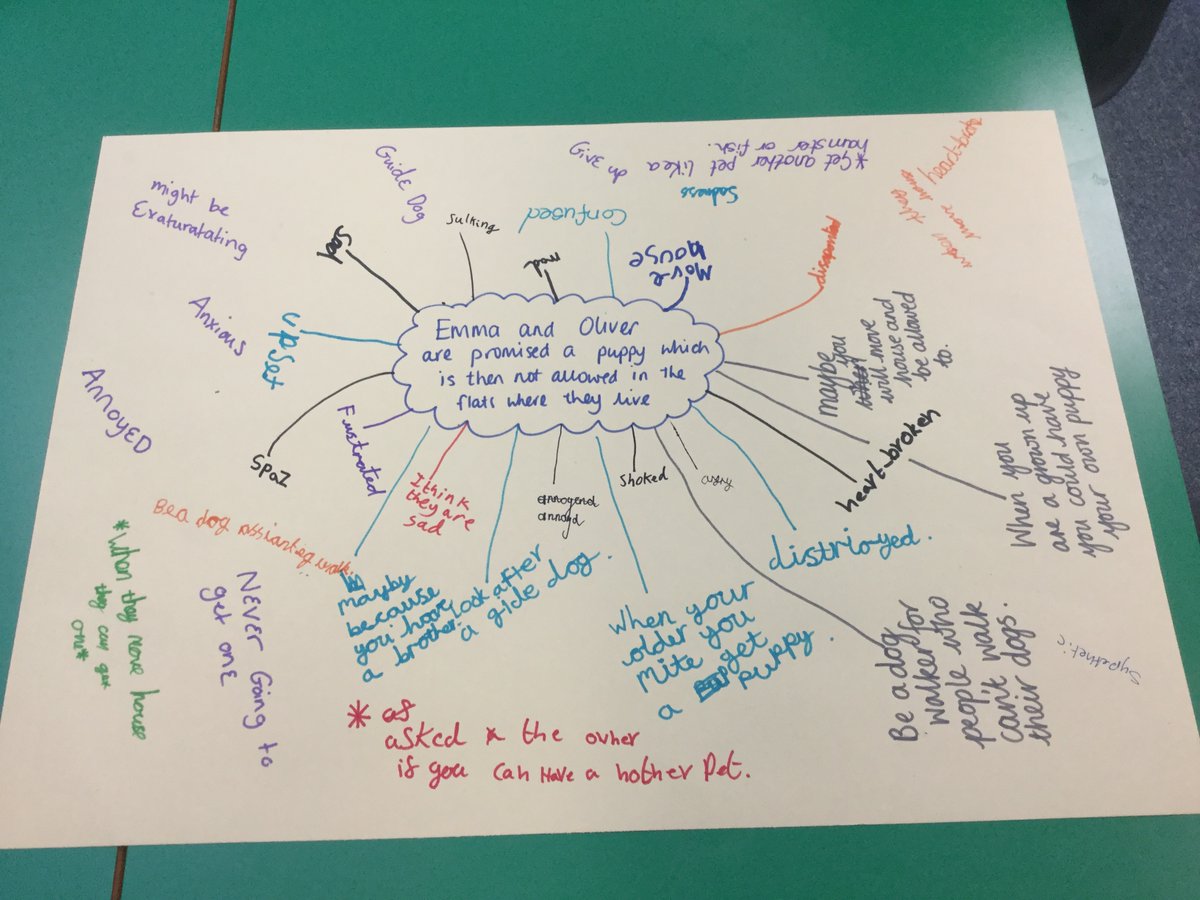 Emma and Oliver
are promised a puppy which
is then not allowed in the
flats where they live
Guide Dog
Sulking
Confused
mad
Move
house
Sadness
Give up
*Get another pet like a
hamster or fish.
heart-broke
when they
move house
disaponted
maybe you
will move
house and
be allowed
to.
When you
are a grown up
you could have
your own puppy
heart-broken
distrioyed.
Be a dog
walker for
people who
can't walk
their dogs.
Sypethetic
angry
Shoked
When your
older you
mite get
a puppy.
annoyend
annoyd
look after
a gide dog.
I think
they are
sad
mayby
because
you have
a brother.
Frustrated
Spaz
upset
Sad
might be
Exaturatating
Anxious
ANNOYED
Be a dog assianteg walk.
*When they move house
they can get
one*
NEVER GOING to
get one
* as
asked * the owner
if you can Have a nother Pet.